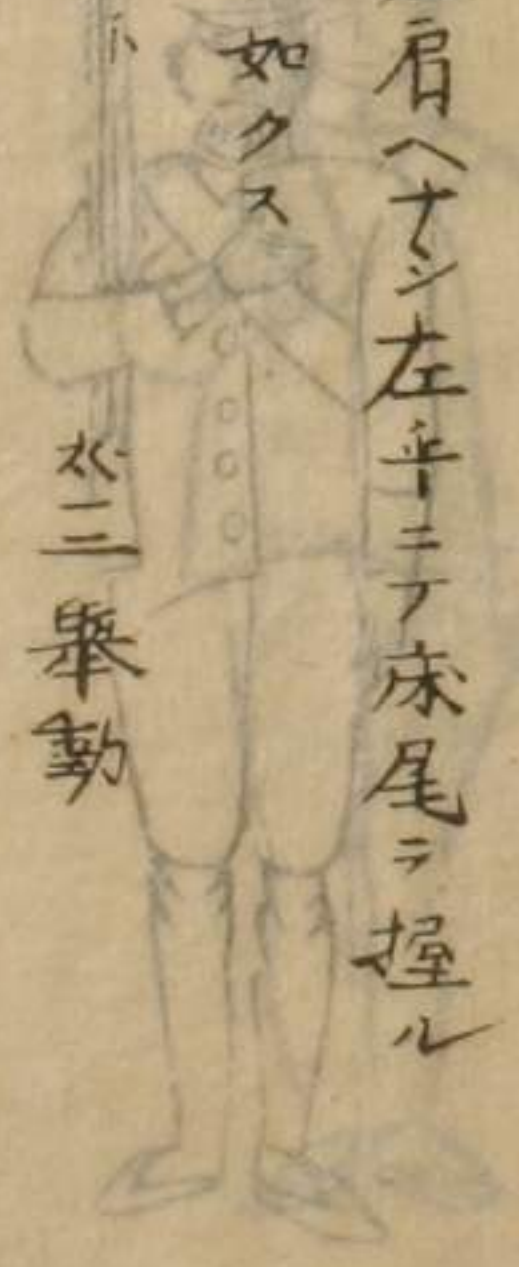 肩ヘナシ左手ニテ床尾ヲ握ル
如クス
第三舉動